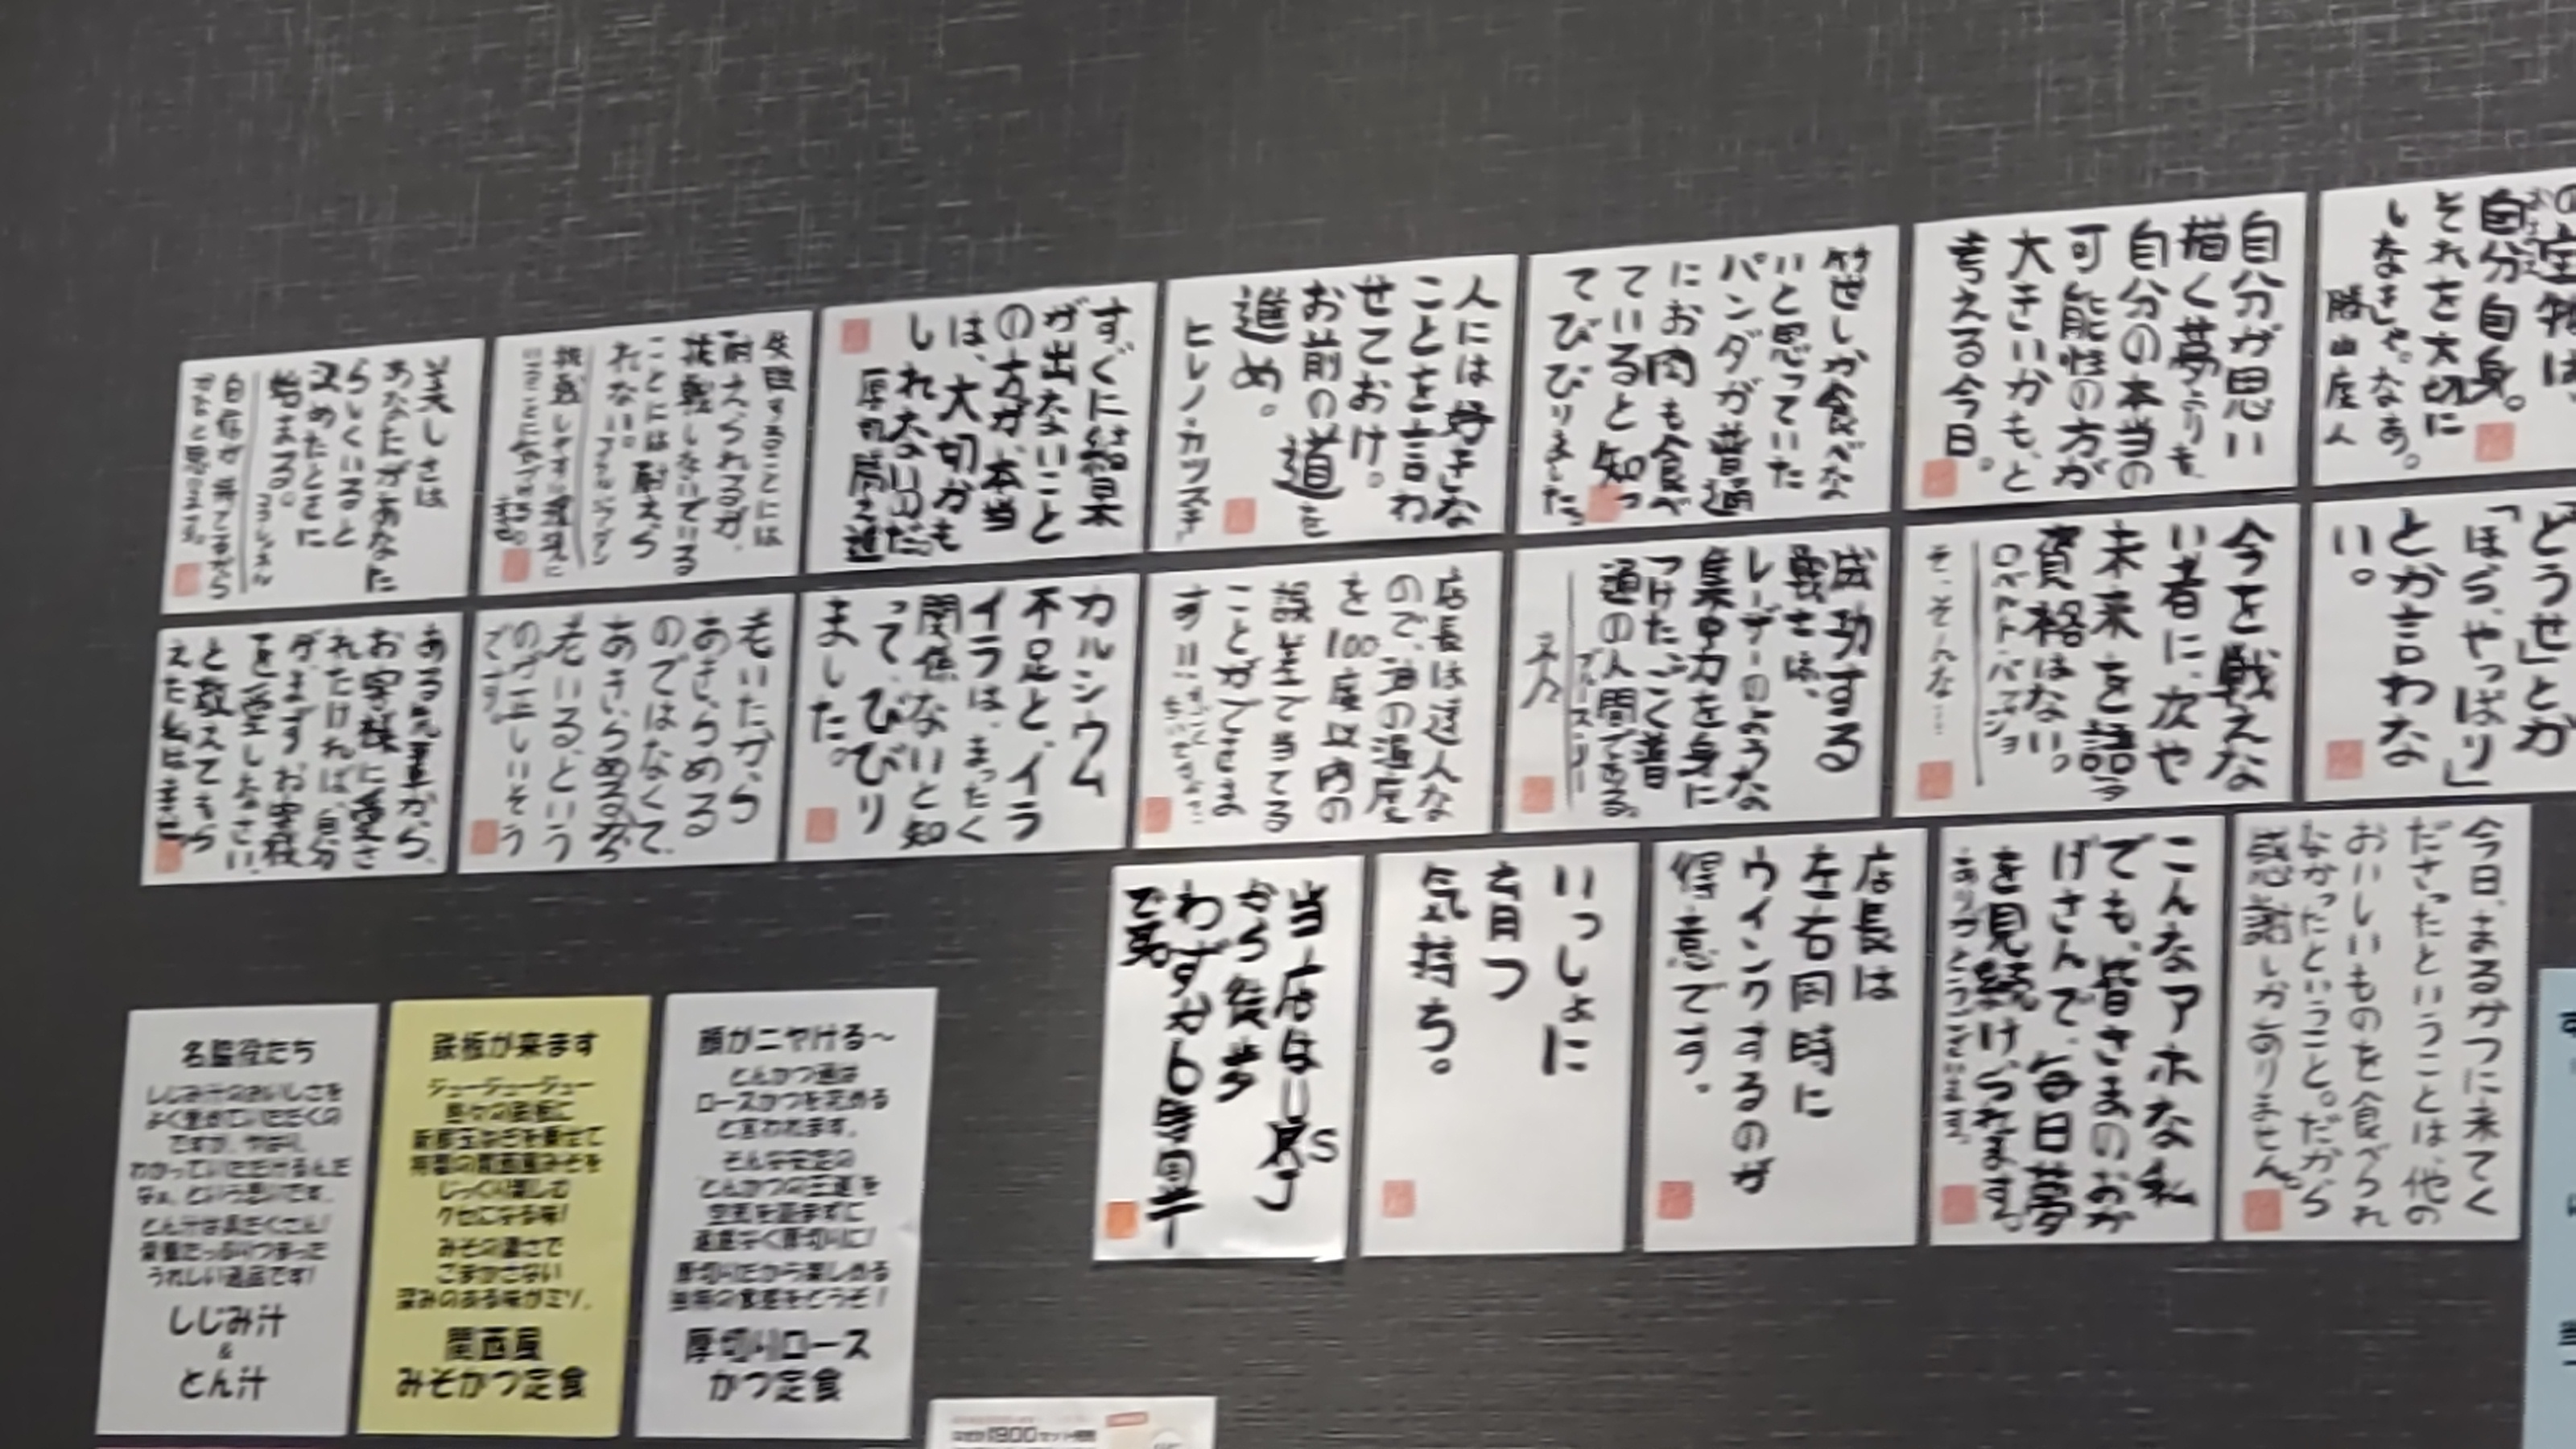 の宝物は、
自分自身。
それを大切に
しなきゃ。なあ。
勝山座人
自分が思い
描く夢よりも
自分の本当の
可能性の方が
大きいかも、と
考える今日。
笹しか食べな
いと思っていた
パンダが普通
にお肉も食べ
ていると知っ
てびびりました。
人には好きな
ことを言わ
せておけ。
お前の道を
進め。
ヒレノ・カツスキー
すぐに結果
が出ないこと
の方が、本当
は、大切かも
しれないのだ。
厚切肩之進
失敗することには
耐えられるが、
挑戦しないでいる
ことには耐えら
れない。
挑戦しやすい環境に
いることに気づける
美しさは
あなたがあなた
らしくいると
決めたときに
始まる。
ココ・シャネル
自信が
すなと思います。
どうせ」とか
「ほら、やっぱり」
とか言わな
い。
今を戦えな
い者に、次や
未来を語る
資格はない。
ロベルト・バッジョ
そ、そんな…
成功する
戦士は、
レーザーのような
集中力を身に
つけた、ごく普
通の人間である。
ブルース・リー
店長は達人な
ので、油の温度
を100度以内の
誤差で当てる
ことができま
す!!
カルシウム
不足と、イラ
イラは、まったく
関係ないと知
って、びびり
ました。
老いたから
あきらめる
のではなくて、
あきらめるから
老いる、という
のが正しいそう
です。
ある先輩から、
お客様に愛さ
れたければ、自分
がまずお客様
を愛しなさい、
と教えてもら
えた私は幸せ
今日、まるかつに来てく
ださったということは、他の
おいしいものを食べられ
なかったということ。だから
感謝しかありません。
こんなアホな私
でも、皆さまのおか
げさんで、毎日夢
を見続けられます。
ありがとうございます。
店長は
左右同時に
ウインクするのが
得意です。
いっしょに
育つ
気持ち。
当店はUSJ
から徒歩
わずか6時間半
です。
名脇役たち
しじみ汁のおいしさを
よく言がていただくの
ですが、やはり、
わかっていただけるんだ
なぁ、という思いです。
とん汁は具だくさん!
栄養たっぷりつまった
うれしい逸品です!
しじみ汁
&
とん汁
鉄板が来ます
ジュージュージュー
熱々の鉄板に
新鮮玉ねぎを乗せて
特製の関西風みそを
じっくり楽しむ
クセになる味!
みその濃さで
ごまかさない
深みのある味がミソ。
関西風
みそかつ定食
顔がニヤける〜
とんかつ通は
ロースかつを究める
と言われます。
そんな安定の
とんかつの王道を
空気を読まずに
遠慮なく厚切りに!
厚切りだから楽しめる
独特の食感をどうぞ!
厚切りロース
かつ定食